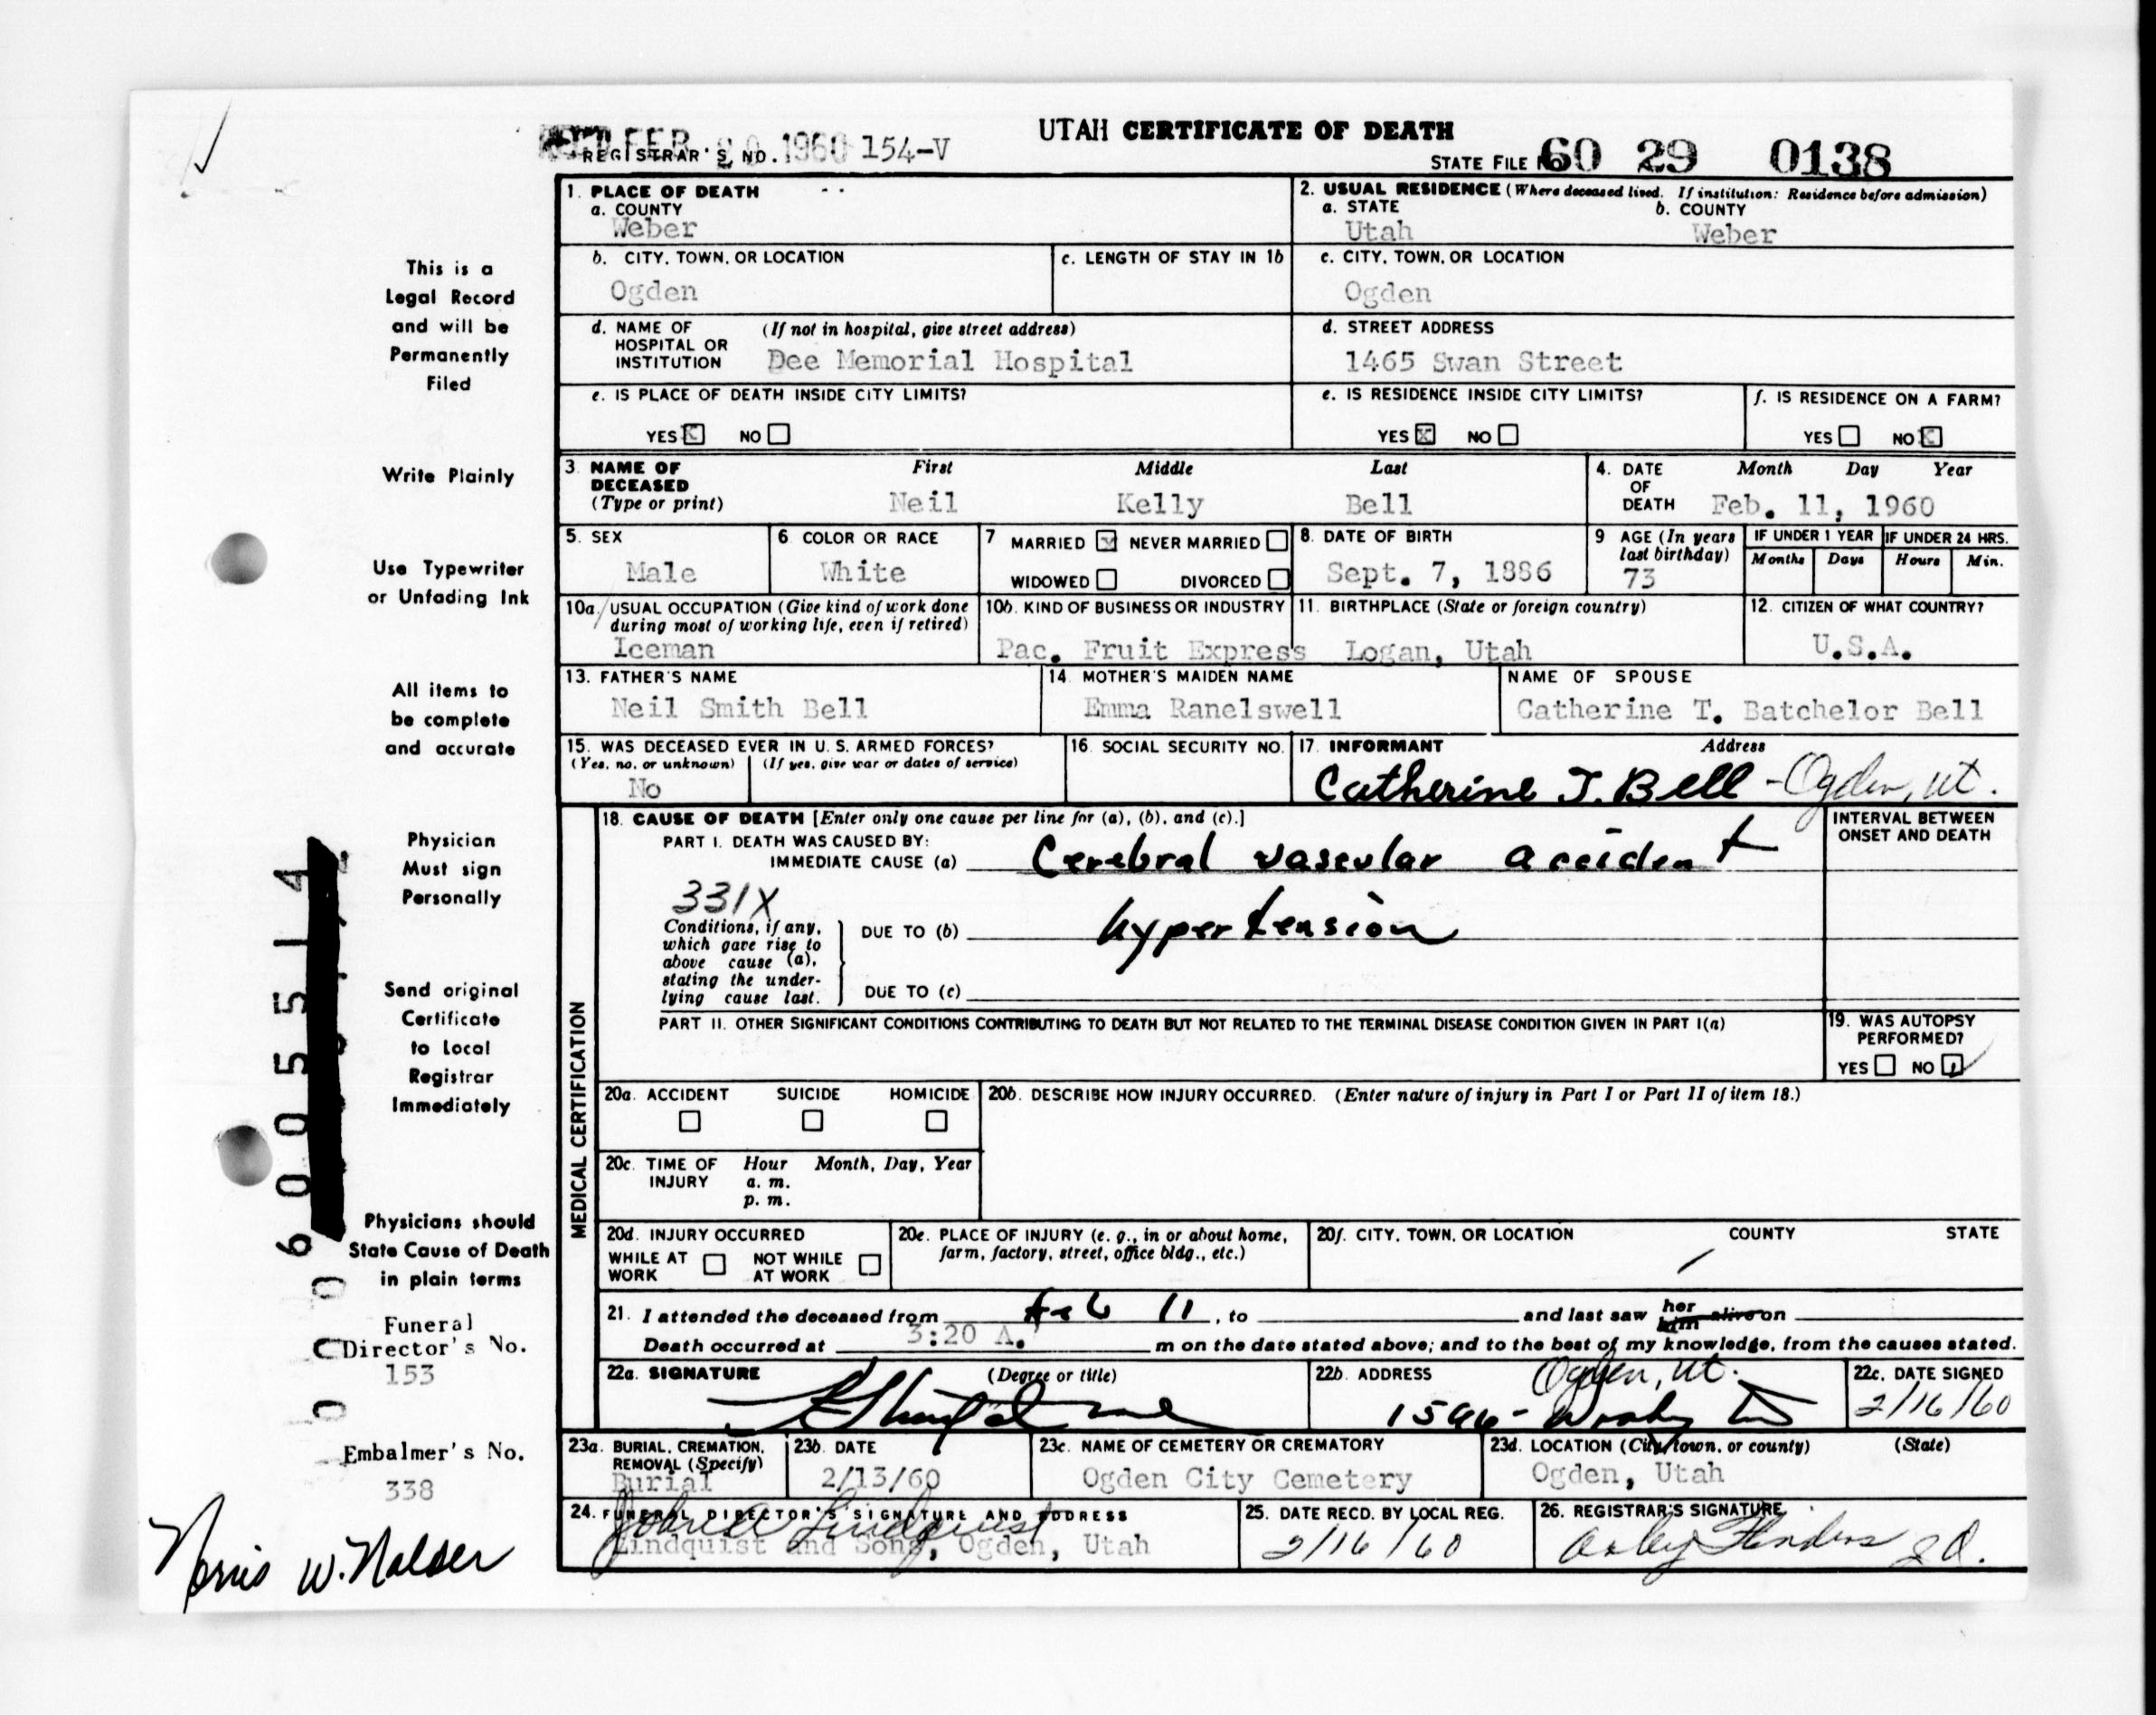 UTAH CERTIFICATE OF DEATH
REGISTRAR'S NO. FEB 20 1960 154-V
STATE FILE No. 60 29 0138
1. PLACE OF DEATH
a. COUNTY
Weber
2. USUAL RESIDENCE (Where deceased lived. If institution: Residence before admission)
a. STATE b. COUNTY
Utah Weber
b. CITY, TOWN, OR LOCATION
Ogden
c. LENGTH OF STAY IN 1b
c. CITY, TOWN, OR LOCATION
Ogden
d. NAME OF HOSPITAL OR INSTITUTION (If not in hospital, give street address)
Dee Memorial Hospital
d. STREET ADDRESS
1465 Swan Street
e. IS PLACE OF DEATH INSIDE CITY LIMITS?
YES X NO
e. IS RESIDENCE INSIDE CITY LIMITS?
YES X NO
f. IS RESIDENCE ON A FARM?
YES NO X
3. NAME OF DECEASED (Type or print) First Middle Last
Neil Kelly Bell
4. DATE OF DEATH Month Day Year
Feb. 11, 1960
5. SEX
Male
6. COLOR OR RACE
White
7 MARRIED X NEVER MARRIED
WIDOWED DIVORCED
8. DATE OF BIRTH
Sept. 7, 1886
9 AGE (In years last birthday)
73
IF UNDER 1 YEAR IF UNDER 24 HRS.
Months Days Hours Min.
10a. USUAL OCCUPATION (Give kind of work done during most of working life, even if retired)
Iceman
10b. KIND OF BUSINESS OR INDUSTRY
Pac. Fruit Express
11. BIRTHPLACE (State or foreign country)
Logan, Utah
12. CITIZEN OF WHAT COUNTRY?
U.S.A.
13. FATHER'S NAME
Neil Smith Bell
14. MOTHER'S MAIDEN NAME
Emma Ranelswell
NAME OF SPOUSE
Catherine T. Batchelor Bell
15. WAS DECEASED EVER IN U. S. ARMED FORCES?
(Yes, no, or unknown) (If yes, give war or dates of service)
No
16. SOCIAL SECURITY NO.
17. INFORMANT Address
Catherine T. Bell - Ogden, Ut.
MEDICAL CERTIFICATION
18. CAUSE OF DEATH [Enter only one cause per line for (a), (b), and (c).]
PART I. DEATH WAS CAUSED BY:
IMMEDIATE CAUSE (a) Cerebral vascular accident
331X
Conditions, if any, which gave rise to above cause (a), stating the underlying cause last.
DUE TO (b) hypertension
DUE TO (c)
INTERVAL BETWEEN ONSET AND DEATH
PART II. OTHER SIGNIFICANT CONDITIONS CONTRIBUTING TO DEATH BUT NOT RELATED TO THE TERMINAL DISEASE CONDITION GIVEN IN PART I(a)
19. WAS AUTOPSY PERFORMED?
YES NO
20a. ACCIDENT SUICIDE HOMICIDE
20b. DESCRIBE HOW INJURY OCCURRED. (Enter nature of injury in Part I or Part II of item 18.)
20c. TIME OF INJURY Hour Month, Day, Year
a. m.
p. m.
20d. INJURY OCCURRED
WHILE AT WORK NOT WHILE AT WORK
20e. PLACE OF INJURY (e. g., in or about home, farm, factory, street, office bldg., etc.)
20f. CITY, TOWN, OR LOCATION COUNTY STATE
21. I attended the deceased from Feb 11, to and last saw her him alive on
Death occurred at 3:20 A. m on the date stated above; and to the best of my knowledge, from the causes stated.
22a. SIGNATURE (Degree or title)
22b. ADDRESS
Ogden, Ut.
22c. DATE SIGNED
2/16/60
23a. BURIAL, CREMATION, REMOVAL (Specify)
Burial
23b. DATE
2/13/60
23c. NAME OF CEMETERY OR CREMATORY
Ogden City Cemetery
23d. LOCATION (City, town, or county) (State)
Ogden, Utah
24. FUNERAL DIRECTOR'S SIGNATURE AND ADDRESS
Lindquist and Sons, Ogden, Utah
25. DATE RECD. BY LOCAL REG.
2/16/60
26. REGISTRAR'S SIGNATURE
This is a
Legal Record
and will be
Permanently
Filed
Write Plainly
Use Typewriter
or Unfading Ink
All items to
be complete
and accurate
Physician
Must sign
Personally
Send original
Certificate
to Local
Registrar
Immediately
Physicians should
State Cause of Death
in plain terms
Funeral
Director's No.
153
Embalmer's No.
338
6005514